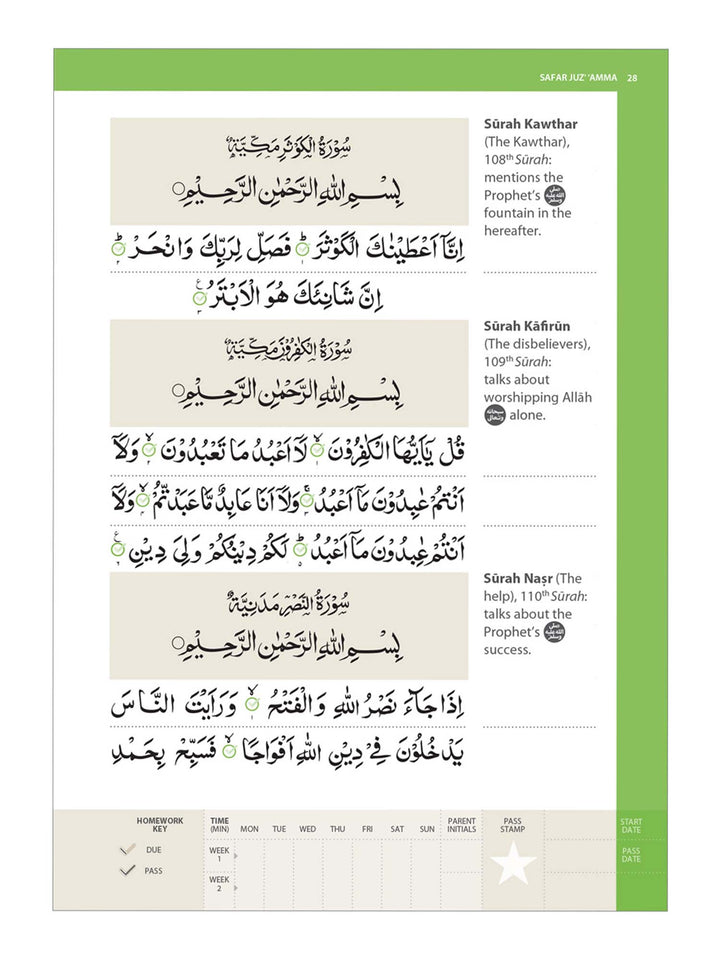 SAFAR JUZ' 'AMMA 28
سُوْرَةُ الْكَوْثَرِ مَكِّيَّةٌ
بِسْمِ اللهِ الرَّحْمٰنِ الرَّحِيْمِ
اِنَّاۤ اَعْطَيْنٰكَ الْكَوْثَرَ ؕ فَصَلِّ لِرَبِّكَ وَانْحَرْ ؕ
اِنَّ شَانِئَكَ هُوَ الْاَبْتَرُ
Sūrah Kawthar
(The Kawthar),
108th Sūrah:
mentions the
Prophet's ﷺ
fountain in the
hereafter.
سُوْرَةُ الْكٰفِرُوْنَ مَكِّيَّةٌ
بِسْمِ اللهِ الرَّحْمٰنِ الرَّحِيْمِ
قُلْ يٰۤاَيُّهَا الْكٰفِرُوْنَ ۙ لَاۤ اَعْبُدُ مَا تَعْبُدُوْنَ ۙ وَلَاۤ
اَنْتُمْ عٰبِدُوْنَ مَاۤ اَعْبُدُ ۚ وَلَاۤ اَنَا عَابِدٌ مَّا عَبَدْتُّمْ ۙ وَلَاۤ
اَنْتُمْ عٰبِدُوْنَ مَاۤ اَعْبُدُ ؕ لَكُمْ دِيْنُكُمْ وَلِيَ دِيْنِ
Sūrah Kāfirūn
(The disbelievers),
109th Sūrah:
talks about
worshipping Allāh
سبحانه وتعالى alone.
سُوْرَةُ النَّصْرِ مَدَنِيَّةٌ
بِسْمِ اللهِ الرَّحْمٰنِ الرَّحِيْمِ
اِذَا جَآءَ نَصْرُ اللهِ وَالْفَتْحُ ۙ وَرَاَيْتَ النَّاسَ
يَدْخُلُوْنَ فِيْ دِيْنِ اللهِ اَفْوَاجًا ۙ فَسَبِّحْ بِحَمْدِ
Sūrah Naṣr (The
help), 110th Sūrah:
talks about the
Prophet's ﷺ
success.
HOMEWORK KEY
DUE
PASS
TIME (MIN) MON TUE WED THU FRI SAT SUN PARENT INITIALS PASS STAMP START DATE
WEEK 1
WEEK 2
PASS DATE